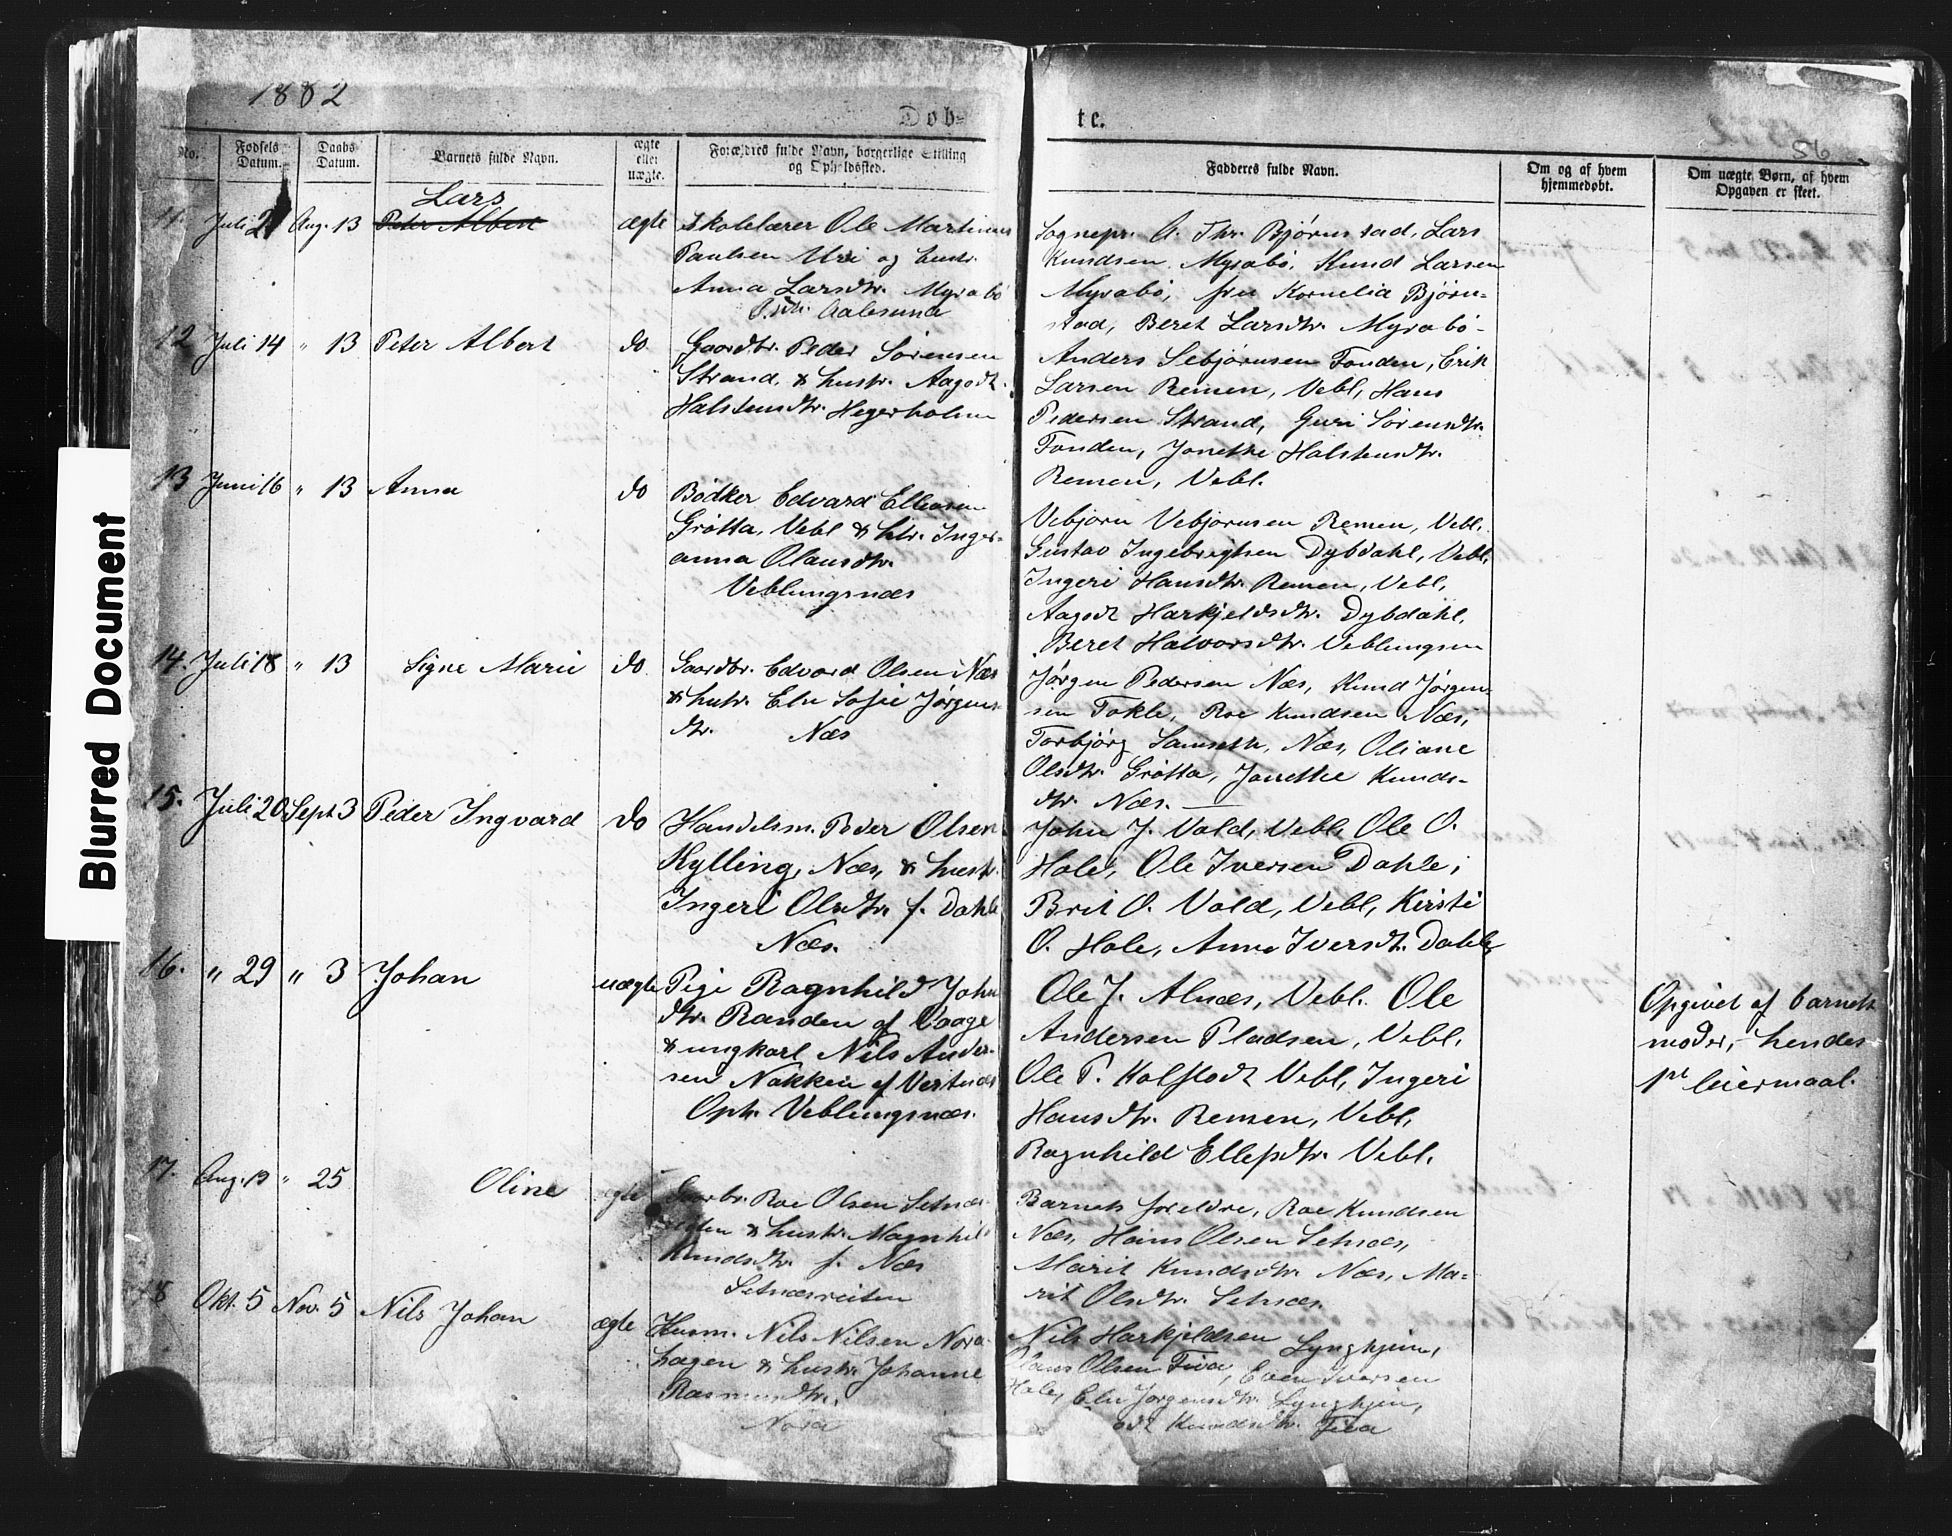 1882
Døb-
te.
56
No.
Fødsels Datum.
Daabs Datum.
Barnets fulde Navn.
ægte eller uægte.
Forældres fulde Navn, borgerlige Stilling og Opholdssted.
Fadderes fulde Navn.
Om og af hvem hjemmedøbt.
Om uægte Børn, af hvem Opgaven er skeet.
Blurred Document
11. Juli 2 Aug. 13 Lars
Peter Albert
ægte
Skolelærer Ole Martinus
Paulsen Uri og hustr.
Anna Larsdtr. Myrabö
Aalesund
Sognepr. A. Thr. Bjørnstad, Lars
Knudsen Myrabö, Knud Larsen
Myrabö, fru Kornelia Bjørn-
stad, Beret Larsdtr. Myrabö-
12 Juli 14 " 13 Peter Albert do.
Gaardbr. Peder Sörensen
Strand, & hustr. Aagodt
Halstensdtr. Hegerholm
Anders Sebjörnsen Fonden, Erik
Larsen Remen, Vebl, Hans
Pedersen Strand, Guri Sörensdtr.
Fonden, Jonette Halstensdtr.
Remen, Vebl.
13 Juni 16 " 13 Anna do
Bödker Edvard Elleasen
Grötta, Vebl & htr. Inger-
anna Olausdtr.
Veblungsnæs
Vebjørn Vebjørnsen Remen, Vebl.
Gustav Ingebrigtsen Dybdahl, Vebl,
Ingeri Hansdtr. Remen, Vebl,
Aagodt Harkjeldsdtr. Dybdahl,
Beret Halvorsdtr. Veblungsn
14. Juli 18 " 13 Signe Marie do
Gaardbr. Edvard Olsen Næs
& hustr. Eln Sofie Jørgens
dtr. Næs
Jørgen Pedersen Næs, Knud Jørgen-
sen Tokle, Roe Knudsen Næs,
Torbjörg Samseth, Næs, Oliane
Olsdtr. Grötta, Jonettee Knuds-
dtr. Næs.
15. Juli 20 Sept 3 Peder Ingvard do
Handelsm. Peder Olsen
Kylling, Næs, & hustr.
Ingeri Olsdtr. f. Dahle
Næs.
John J. Vold, Vebl, Ole O.
Hole, Ole Iversen Dahle,
Brit O. Vold, Vebl, Kirsti
O. Hole, Anne Iversdt. Dahle
16. " 29 " 3 Johan uægte
Pige Ragnhild John
dtr. Randen af Vaage
& ungkarl Nils Ander-
sen Nakken af Vestnæs
Oph. Veblungsnæs.
Ole J. Alnæs, Vebl. Ole
Andersen Pladsen, Vebl.
Ole P. Kolflodt Vebl, Ingeri
Hansdtr. Remen, Vebl,
Ragnhild Ellefsdtr. Vebl.
Opgivet af barnets
moder,- hendes
1ste leiermaal.
17. Aug. 19 " 25 Oline ægte
Gaarbr. Roe Olsen Setnæs-
& hustr. Magnhild
Knudsdtr. f. Næs
Setnæsreiten
Barnets foreldre, Roe Knudsen
Næs, Hans Olsen Setnæs,
Marit Knudsdtr. Næs, Ma-
rit Olsdtr. Setnæs.
18 Okt. 5 Nov. 5 Nils Johan ægte
Husm. Nils Nilsen Nora-
hagen & hustr. Johanne
Rasmusdtr.
Nora
Nils Harkjeldsen Lyngheim,
Olaus Olsen Fiva, Even Iversen
Hole, Eln Jørgensdtr. Lyngheim,
odt Knudsdtr. Fiva